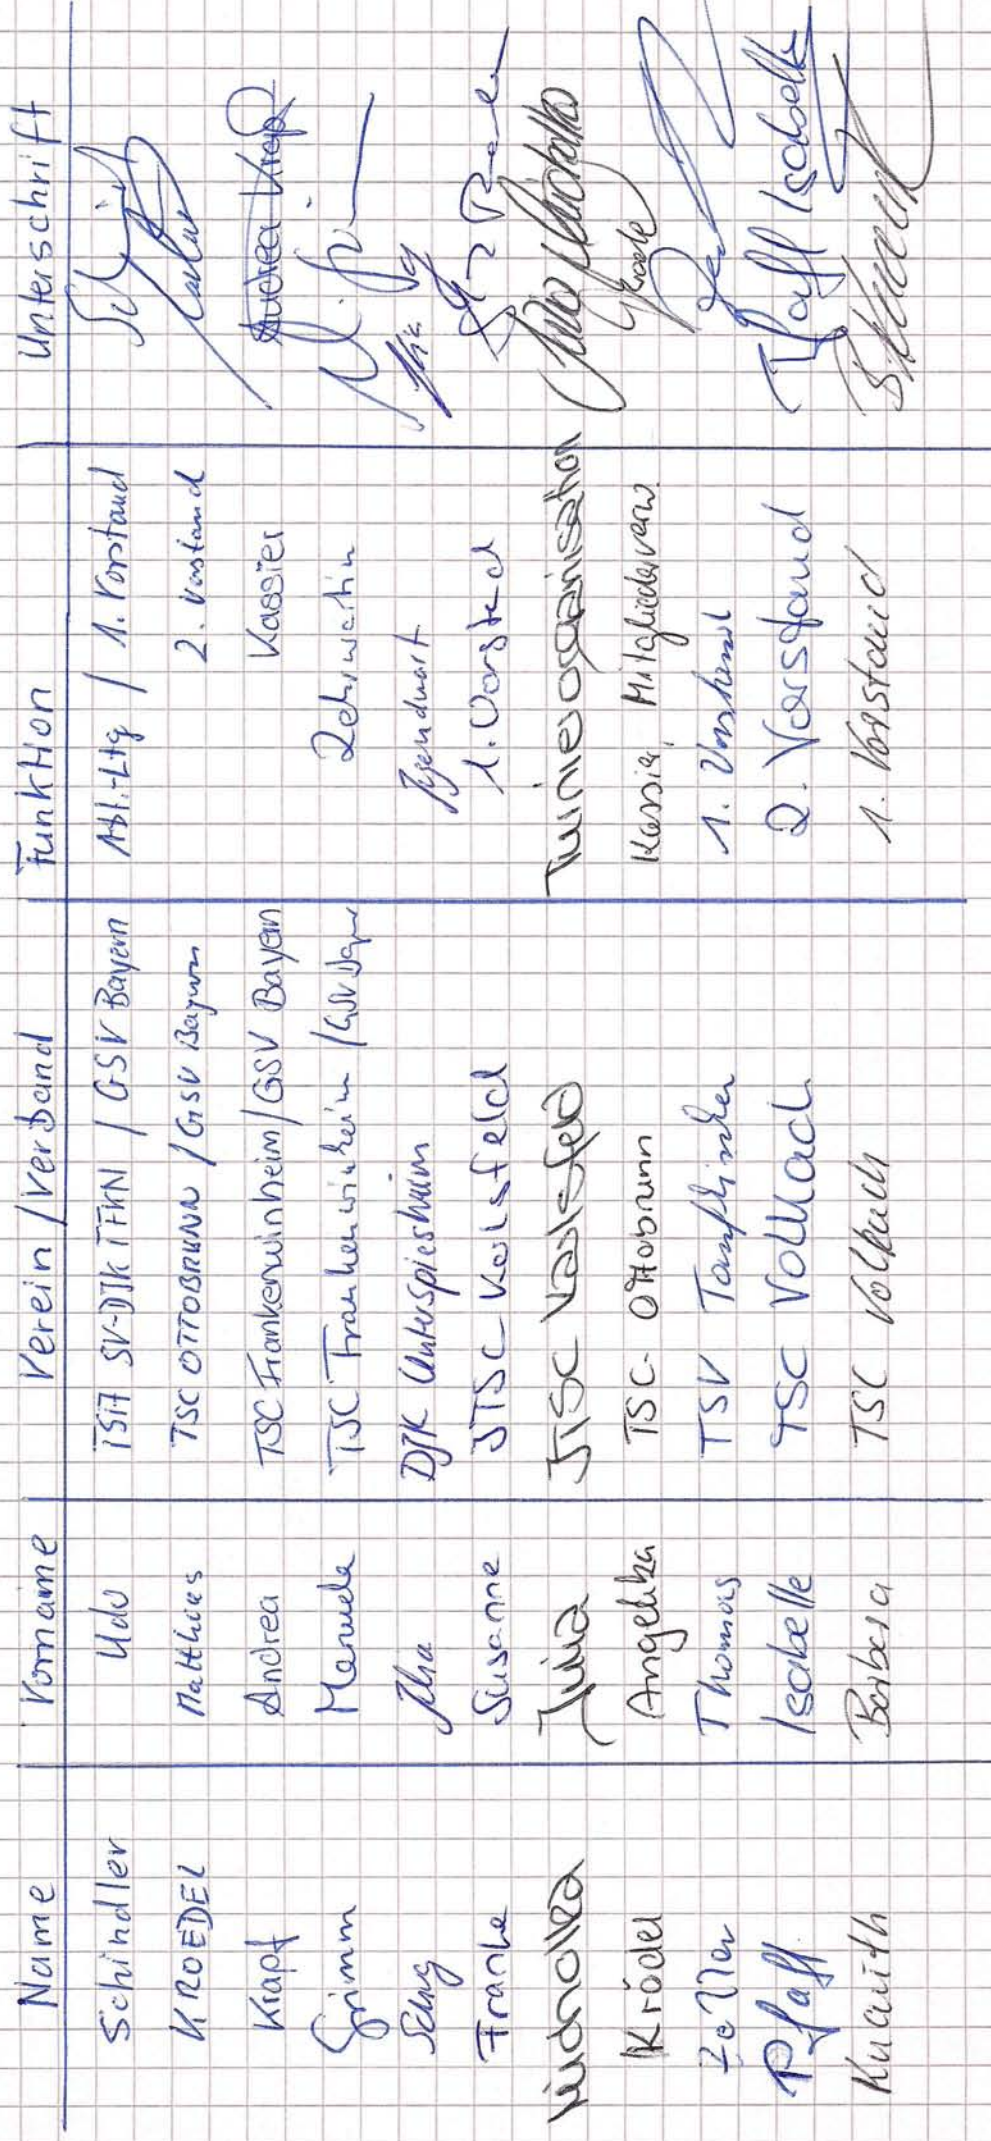 Name Vorname Verein/Verband Funktion Unterschrift
Schindler Udo / GSV Bayern Abt.-Ltg / 1. Vorstand
KROEDEL Matthias TSC OTTOBRUNN / GSV Bayern 2. Vorstand
Krapf Andrea TSC Frankenwinheim/GSV Bayern Kassier Andrea Krapf
Grimm Manuela TSC Frankenwinheim /GSV Bayern
Schug DJK Unterspiesheim Jugendwart
Franke Susanne JTSC Karlsfeld 1. Vorstand
Julia JTSC Karlsfeld Turnierorganisation
Krödel Angelika TSC Ottobrunn Kassier, Mitgliederverw.
Zeller Thomas TSV 1. Vorstand
Pfaff Isabelle TSC Volkach 2. Vorstand Pfaff Isabelle
Barbara TSC Volkach 1. Vorstand